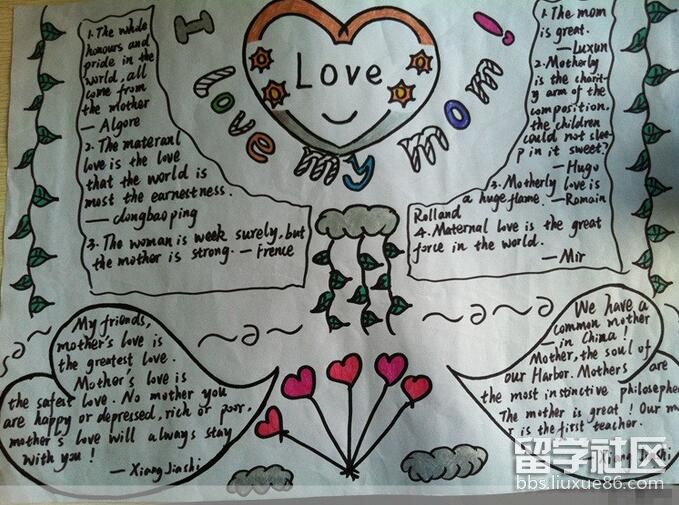 I love my mom!
Love
1. The whole
honours and
pride in the
world, all
come from
the mother
— Algore
2. The materanl
love is the love
that the world is
most the earnestness.
— dongbao ping
3. The woman is week surely, but
the mother is strong. — Frence
1. The mom
is great.
— Luxun
2. Motherly
is the charit-
y arm of the
composition,
the children
could not slee-
p in it sweet?
— Hugo
3. Motherly love is
a huge flame. — Romain
Rolland
4. Maternal love is the great
force in the world.
— Mir
My friends,
mother's love is
the greatest love.
Mother's love is
the safest love. No mother you
are happy or depressed, rich or poor,
mother's love will always stay
with you!
— Xiang Jiashi
We have a
common mother
— in China!
Mother, the soul of
our Harbor. Mothers are
the most instinctive philosopher
The mother is great! Our m
is the first teacher.
留学社区
bbs.liuxue86.com